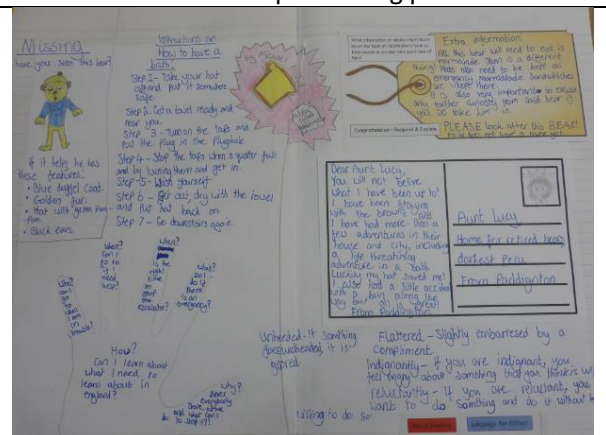 Missing
have you seen this bear?
If it helps he has
these features:
• Blue duffel coat.
• Golden fur.
• Hat with
• Black ears.
Instructions on
How to have a
bath:
Step 1- Take your hat
off and put it somewhere
safe.
Step 2- Get a towel ready and
near you.
Step 3 - Turn on the taps and
put the plug in the plughole.
Step 4 - Stop the taps when a quarter full
and by turning them and get in.
Step -5- Wash yourself.
Step 6 - Get out, dry with the towel
and put hat back on.
Step 7 - Go downstairs again.
Extra information:
All this bear will need to eat is
marmalade. Jam is a different
thing! Hats also need to be kept on
emergency marmalade Sandwiches
are kept there.
It is also very important to
any further curiosity from said bear if
you do take him in.
PLEASE look after this BEAR!
Comprehension - Respond & Explain
Dear Aunt Lucy,
You will not belive
what I have been up to!
I have been staying
with the browns and
I have had more than a
few adventures in their
house and city, including
a life threatning
adventure in a bath.
Luckily my hat saved me!
I also had a little accident
with a bun along the
way but all is great!
From Paddington
Aunt Lucy
Home for retired bears
darkest Peru
From Paddington
Where
can I
go
when
I am
in
trouble?
When?
can I
go to
if I
need
help?
When?
is the
right
time
to
the
escalator?
What?
do I
do if
there
is an
emergency?
How?
Can I learn about
what I need to
learn about in
england?
Why?
does
everybody
Stare at me
and what can I
do to stop it?
Unheeded - If Somthing
goes unheeded, it is
ignored
Flattered - Slightly embarresed by a
Compliment.
Indignantly - If you are indignant, you
feel angry about something that you think is
reluctantly - If you are reluctant, you
want to do Somthing and do it without
willing to do so.
Language for Effect